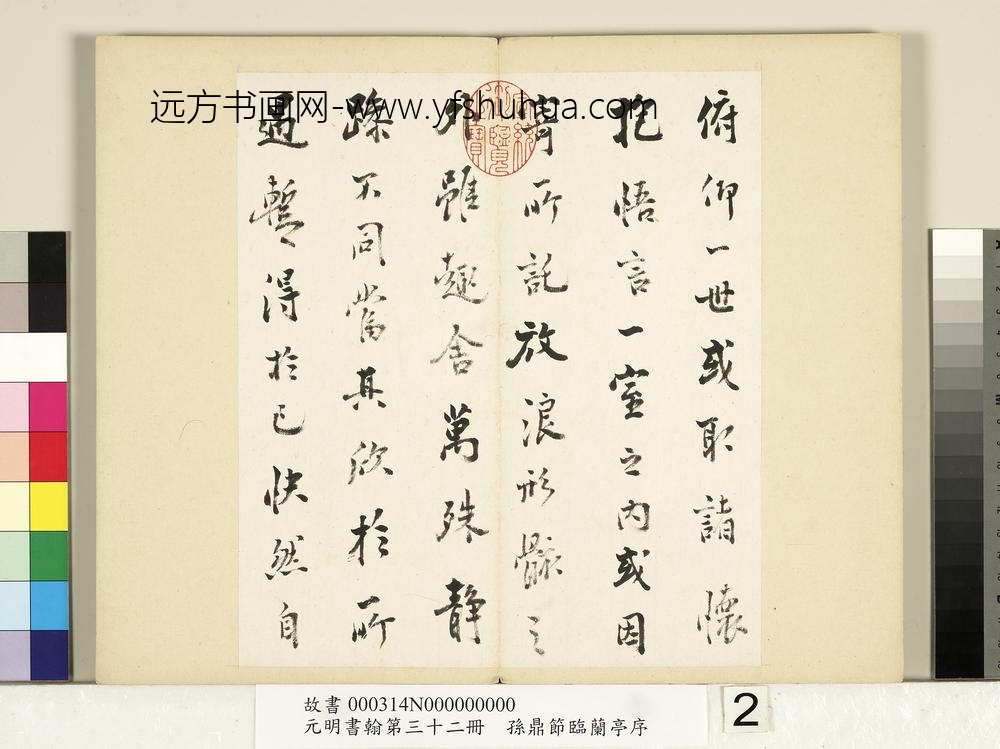 远方书画网-www.yfshuhua.com
俯仰一世或取諸懷
抱悟言一室之內或因
寄所託放浪形骸之
外雖趣舍萬殊靜
躁不同當其欣於所
遇暫得於己快然自
故書 000314N000000000
元明書翰第三十二冊 孫鼎節臨蘭亭序
2